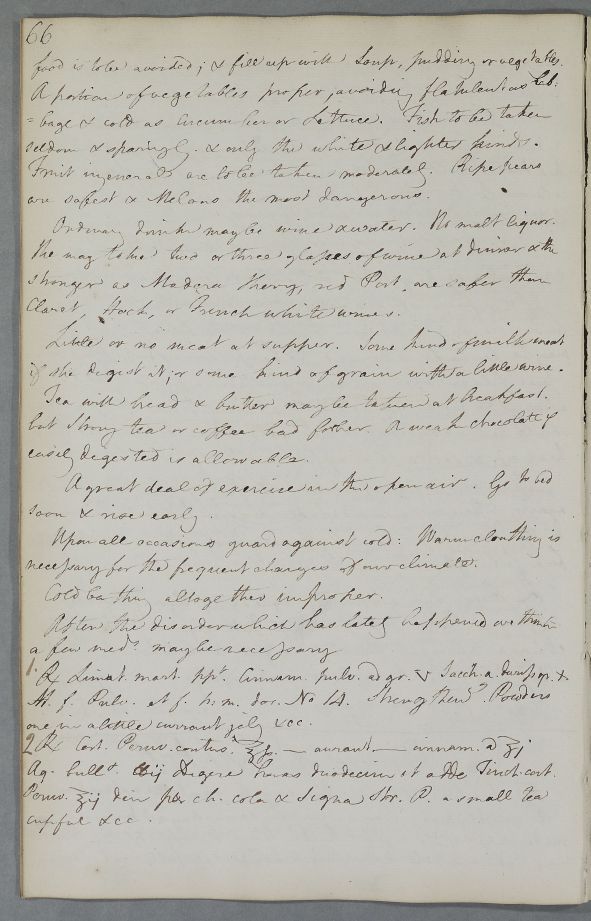 66
food is to be avoided; & fill up with Soup, pudding or vegetables.
A portion of vegetables proper, avoiding flatulent as Cab:
=bage & cold as Cucumber or Lettuce. Fish to be taken
seldom & sparingly. & only the white & lighter kinds.
Fruit in general are to be taken moderately. Ripe pears
are safest & Melons the most dangerous.
Ordinary drink may be wine & water. No malt liquor.
She may take two or three glasses of wine at dinner & the
stronger as Madeira Sherry, red Port, are safer than
Claret, Hock, or French white wines.
Little or no meat at supper. Some kind of milk meat
if she digest it, or some kind of grain with a little wine.
Tea with bread & butter may be taken at breakfast.
but strong tea or coffee bad for her. A weak chocolate if
easily digested is allowable.
A great deal of exercise in the open air. Go to bed
soon & rise early.
Upon all occasions guard against cold: Warm cloathing is
necessary for the frequent changes of our climate.
Cold bathing altogether improper.
After the disorder which has lately happened we think
a few meds. may be necessary
1. ℞ Limat. mart. ppt. Cinnam. pulv. a gr. v Sacch. a
M. f. Pulv. et f. h. m. dos. No 14. Strengthen.g Powders
one in a little currant jelly &cc.
2 ℞ Cort. Peruv. contus. ℥ — aurant. — cinnam. a ʒj
Aq. bullt. digere horas duodecim et adde Tinct. cort.
Peruv. ℥ij dein per ch. cola & Signa Str. P. a small tea
cupful &cc.